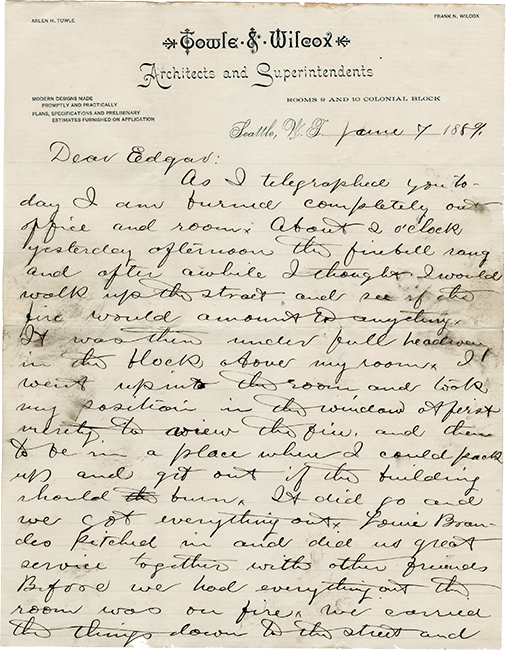 ARLEN H. TOWLE
FRANK N. WILCOX
Towle & Wilcox
Architects and Superintendents
MODERN DESIGNS MADE
PROMPTLY AND PRACTICALLY
PLANS, SPECIFICATIONS AND PRELIMINARY
ESTIMATES FURNISHED ON APPLICATION
ROOMS 9 AND 10 COLONIAL BLOCK
Seattle, W. T. June 7 1889.
Dear Edgar:
As I telegraphed you to-
day I am burned completely out
office and room. About 2 o'clock
yesterday afternoon the firebell rang
and after awhile I thought I would
walk up the street and see if the
fire would amount to anything.
It was then under full headway
in the block above my room. I
went up into the room and took
my position in the window at first
merely to view the fire, and then
to be in a place where I could pack
up and get out if the building
should burn. It did go and
we got everything out. Louie Bran-
des pitched in and did us great
service together with other friends
Before we had everything out the
room was on fire. We carried
the things down to the street and